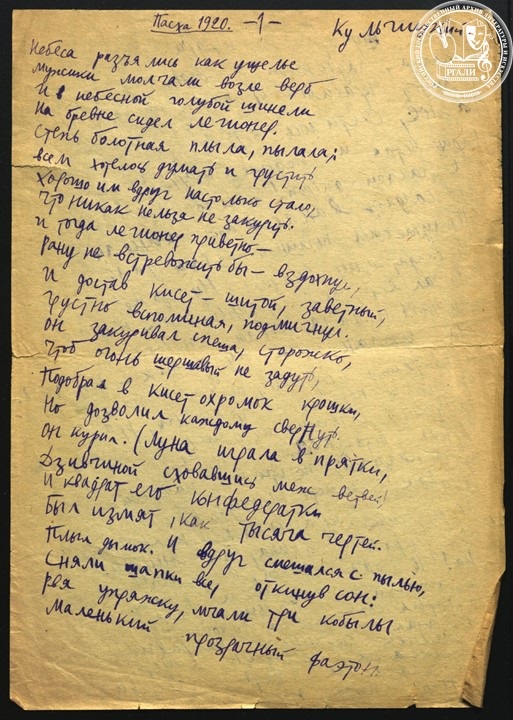 Пасха 1920. -1-
Кульчицкий
Небеса разъялись как ущелье
мужики молчали возле верб
И в небесной голубой шинели
На бревне сидел легионер.
Степь болотная плыла, пылала;
всем хотелось думать и грустить
Хорошо им вдруг настолько стало,
Что никак нельзя не закурить.
И тогда легионер приветно –
рану не встревожить бы – вздохнул,
И достав кисет – шитой, заветный,
Грустно вспоминая, подмигнул.
Он закуривал спеша, сторожко,
Чтоб огонь шершавый не задуть,
Подобрал в кисет охромок крошки,
Но дозволил каждому свернуть.
Он курил. (Луна играла в прятки,
Дзивчиной сховавшись меж ветвей)
И квадрат его конфедератки
Был измят, как тысяча чертей.
Плыл дымок. И вдруг смешался с пылью,
Сняли шапки все, откинув сон:
Рвя упряжку, мчали три кобылы
Маленький прозрачный фаэтон.
РГАЛИ